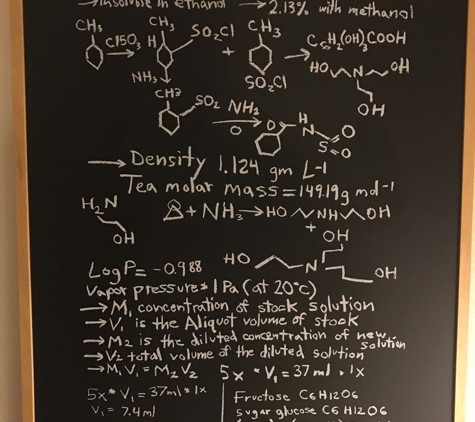 →insoluble in ethanol → 2.13% with methanol
CH3 CH3 SO2Cl CH3
ClSO3 H + C6H2(OH)3COOH
NH3 SO2Cl HO N OH
CH3 OH
SO2 NH2 H N O
O S O
→ Density 1.124 gm L-1
Tea molar mass = 149.19g mol-1
H2N + NH3 → HO NH OH
OH +
OH
HO N OH
LogP= -0.988
Vapor pressure= 1Pa (at 20°C)
→ M1 concentration of stock solution
→ V1 is the Aliquot volume of stock
→ M2 is the diluted concentration of new solution
→ V2 total volume of the diluted solution
→ M1V1 = M2V2 5x * V1 = 37ml * 1x
5x * V1 = 37ml * 1x
V1 = 7.4ml
Fructose C6H12O6
Sugar glucose C6H12O6